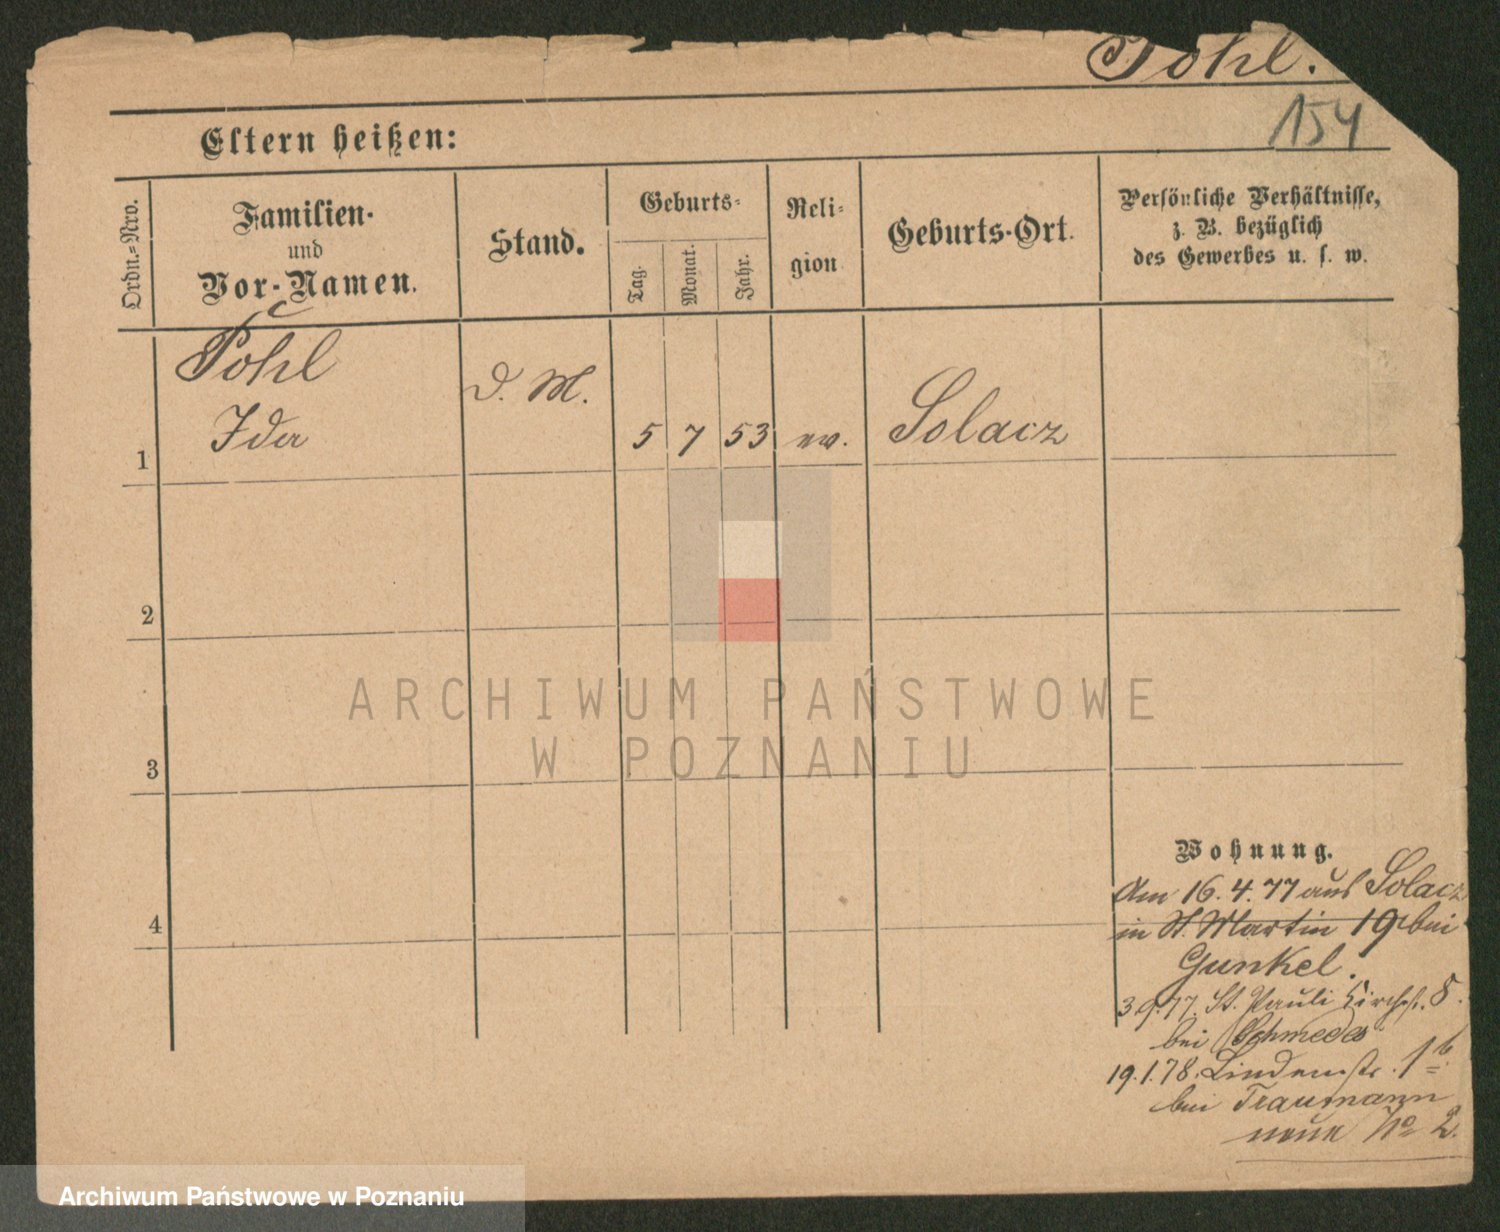 Pohl.
154
Eltern heißen:
Ordn.-Nro.
Familien-
und
Vor-Namen.
Stand.
Geburts-
Tag.
Monat.
Jahr.
Reli-
gion
Geburts-Ort.
Persönliche Verhältnisse,
z. B. bezüglich
des Gewerbes u. s. w.
Pohl
Ida
D. M.
1
5 7 53 ev. Solacz
2
3
4
ARCHIWUM PAŃSTWOWE
W POZNANIU
Wohnung.
Am 16. 4. 77 aus Solacz
in St. Martin 19 bei
Gunkel.
3.9.77. St. Pauli Kirchst. 8.
bei Schmedes
19.1.78. Lindenstr. 1b.
bei Traumann
neue No 2.
Archiwum Państwowe w Poznaniu